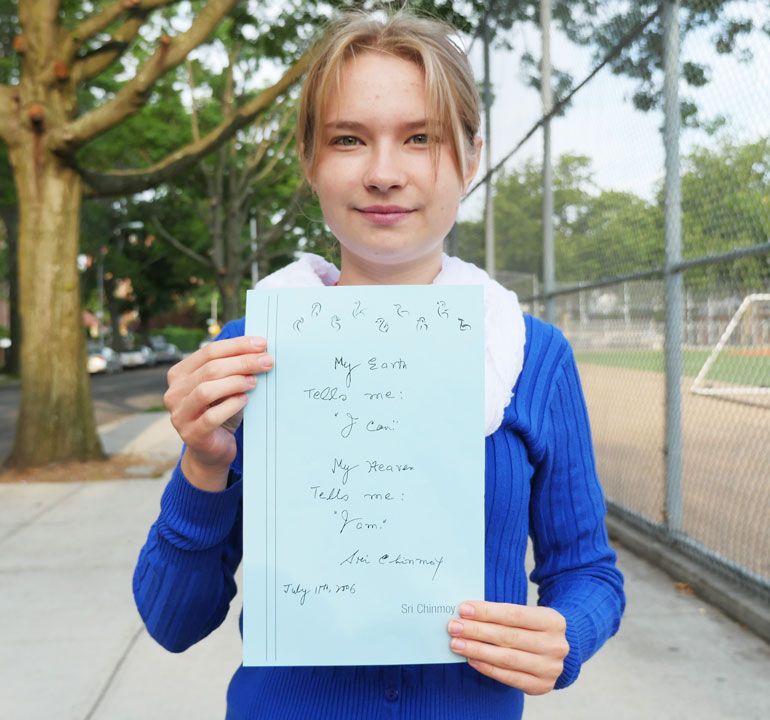 My Earth
Tells me:
"I can."
My Heaven
Tells me:
"I am."
Sri Chinmoy
July 11th, 2006
Sri Chinmoy